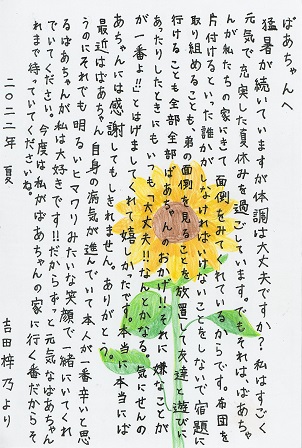 ばあちゃんへ
猛暑が続いていますが体調は大丈夫ですか？私はすごく
元気で充実した夏休みを過ごしています。でもそれは、ばあちゃ
んが私たちの家にきて面倒をみてくれているからです。布団を
片付けるといった誰かがしなければいけないことをしないで宿題に
取り組めることも、弟の面倒を見ることを放置して友達と遊びに
行けることも全部全部ばあちゃんのおかげ!!それに嫌なことが
あったりしたときにも、いつも「大丈夫!!なんとかなる。気にせんの
が一番よ!!」とはげましてくれて嬉しかったです。本当に本当にば
あちゃんには感謝してもしきれません。ありがとう。
最近はばあちゃん自身の病気が進んでいて本人が一番辛いと思
うのにそれでも明るいヒマワリみたいな笑顔で一緒にいてくれ
るばあちゃんが私は大好きです!!だからずっと元気なばあちゃん
でいてください。今度は私がばあちゃんの家に行く番だからそ
れまで待っていてくださいね。
二〇二二年 夏
吉田梓乃より